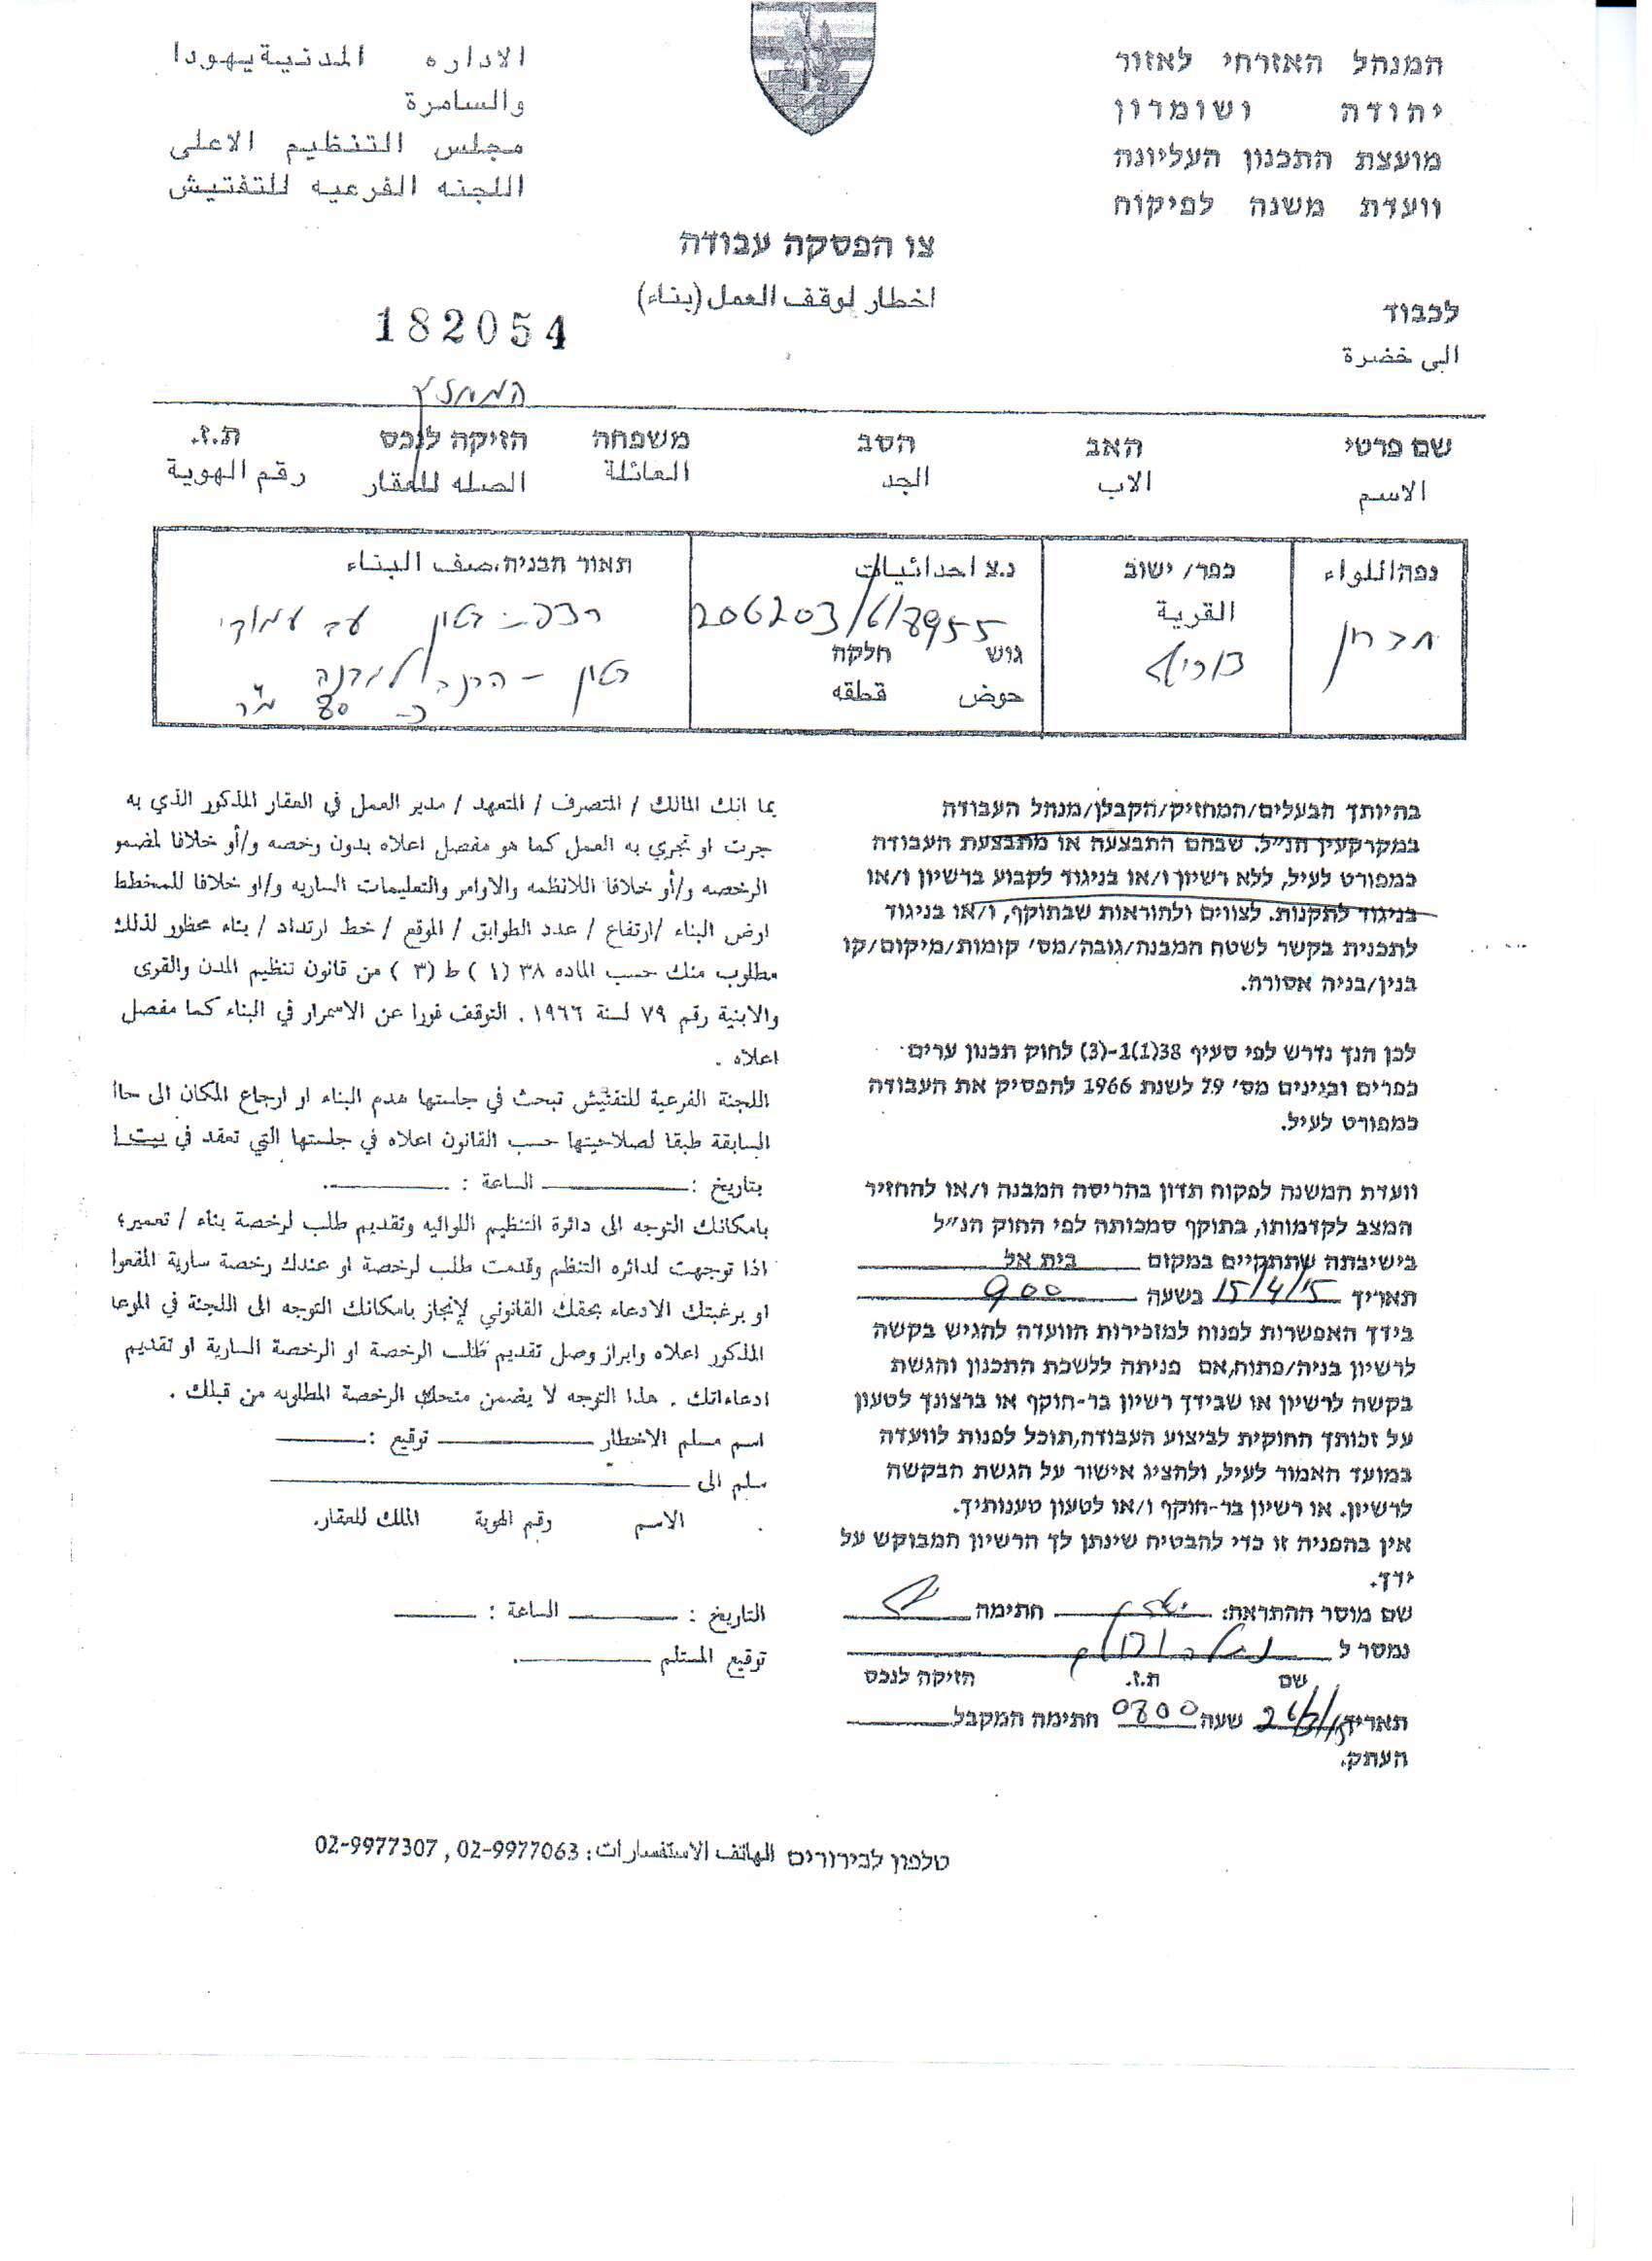 המנהל האזרחי לאזור
יהודה ושומרון
מועצת התכנון העליונה
וועדת משנה לפיקוח
الاداره المدنية يهودا
والسامرة
مجلس التنظيم الاعلى
اللجنه الفرعيه للتفتيش
צו הפסקה עבודה
اخطار لوقف العمل (بناء)
182054
לכבוד
الى حضرة
שם פרטי האב הסב משפחה הזיקה לנכס ת.ז.
الاسم الاب الجد العائلة الصله للعقار رقم الهوية
נפה اللواء
חברון
כפר/ ישוב
القرية
נ.צ احداثيات
206203/618955
גוש חלקה
حوض قطقه
תאור הבניה، صنف البناء
רצפת בטון על עמודי
בטון – הכנה לבניה
כ- 80 מ"ר
בהיותך הבעלים/המחזיק/הקבלן/מנהל העבודה
במקרקעין הנ״ל. שבהם התבצעה או מתבצעת העבודה
כמפורט לעיל, ללא רשיון ו/או בניגוד לקבוע ברשיון ו/או
בניגוד לתקנות. לצווים ולהוראות שבתוקף, ו/או בניגוד
לתכנית בקשר לשטח המבנה/גובה/מס׳ קומות/מיקום/קו
בנין/בניה אסורה.
לכן הנך נדרש לפי סעיף 38(1)1-(3) לחוק תכנון ערים
כפרים ובנינים מס׳ 79 לשנת 1966 להפסיק את העבודה
כמפורט לעיל.
וועדת המשנה לפקוח תדון בהריסה המבנה ו/או להחזיר
המצב לקדמותו, בתוקף סמכותה לפי החוק הנ״ל
בישיבתה שתתקיים במקום בית אל
תאריך 15/4/15 בשעה 900
בידך האפשרות לפנוח למזכירות הוועדה להגיש בקשה
לרשיון בניה/פתוח,אם פניתה ללשכת התכנון והגשת
בקשה לרשיון או שבידך רשיון בר-תוקף או ברצונך לטעון
על זכותך החוקית לביצוע העבודה,תוכל לפנות לוועדה
במועד האמור לעיל, ולהציג אישור על הגשת הבקשה
לרשיון. או רשיון בר-תוקף ו/או לטעון טענותיך.
אין בהפניה זו כדי להבטיח שינתן לך הרשיון המבוקש על
ידך.
שם מוסר ההתראה: חתימה
נמסר ל
שם ת.ז. הזיקה לנכס
תאריך שעה 0800 חתימה המקבל
העתק.
بما انك المالك / المتصرف / المتعهد / مدير العمل في العقار المذكور الذي به
جرت او تجري به العمل كما هو مفصل اعلاه بدون رخصه و/أو خلافا لمضمو
الرخصه و/أو خلافا اللانظمه والاوامر والتعليمات الساريه و/او خلافا للمخطط
ارض البناء /ارتفاع / عدد الطوابق / الموقع / خط ارتداد / بناء محظور لذلك
مطلوب منك حسب الماده ٣٨ (١) ط (٣) من قانون تنظيم المدن والقرى
والابنية رقم ٧٩ لسنة ١٩٦٦ . التوقف فورا عن الاسمرار في البناء كما مفصل
اعلاه .
اللجنة الفرعية للتفتيش تبحث في جلستها هدم البناء او ارجاع المكان الى حاا
السابقة طبقا لصلاحيتها حسب القانون اعلاه في جلستها التي تعقد في بيت ا
بتاريخ : الساعة :
بامكانك التوجه الى دائرة التنظيم اللوائيه وتقديم طلب لرخصة بناء / تعمير؛
اذا توجهت لدائره التنظم وقدمت طلب لرخصة او عندك رخصة سارية المفعوا
او برغبتك الادعاء بحقك القانوني لإنجاز بامكانك التوجه الى اللجنة في الموعا
المذكور اعلاه وابراز وصل تقديم طلب الرخصة او الرخصة السارية او تقديم
ادعاءاتك . هذا التوجه لا يضمن منحك الرخصة المطلوبه من قبلك .
اسم مسلم الاخطار توقيع :
سلم الى
الاسم رقم الهوية الملك للعقار.
التاريخ : الساعة :
توقيع المستلم
טלפון לבירורים الهاتف الاستفسارات: 02-9977063 , 02-9977307